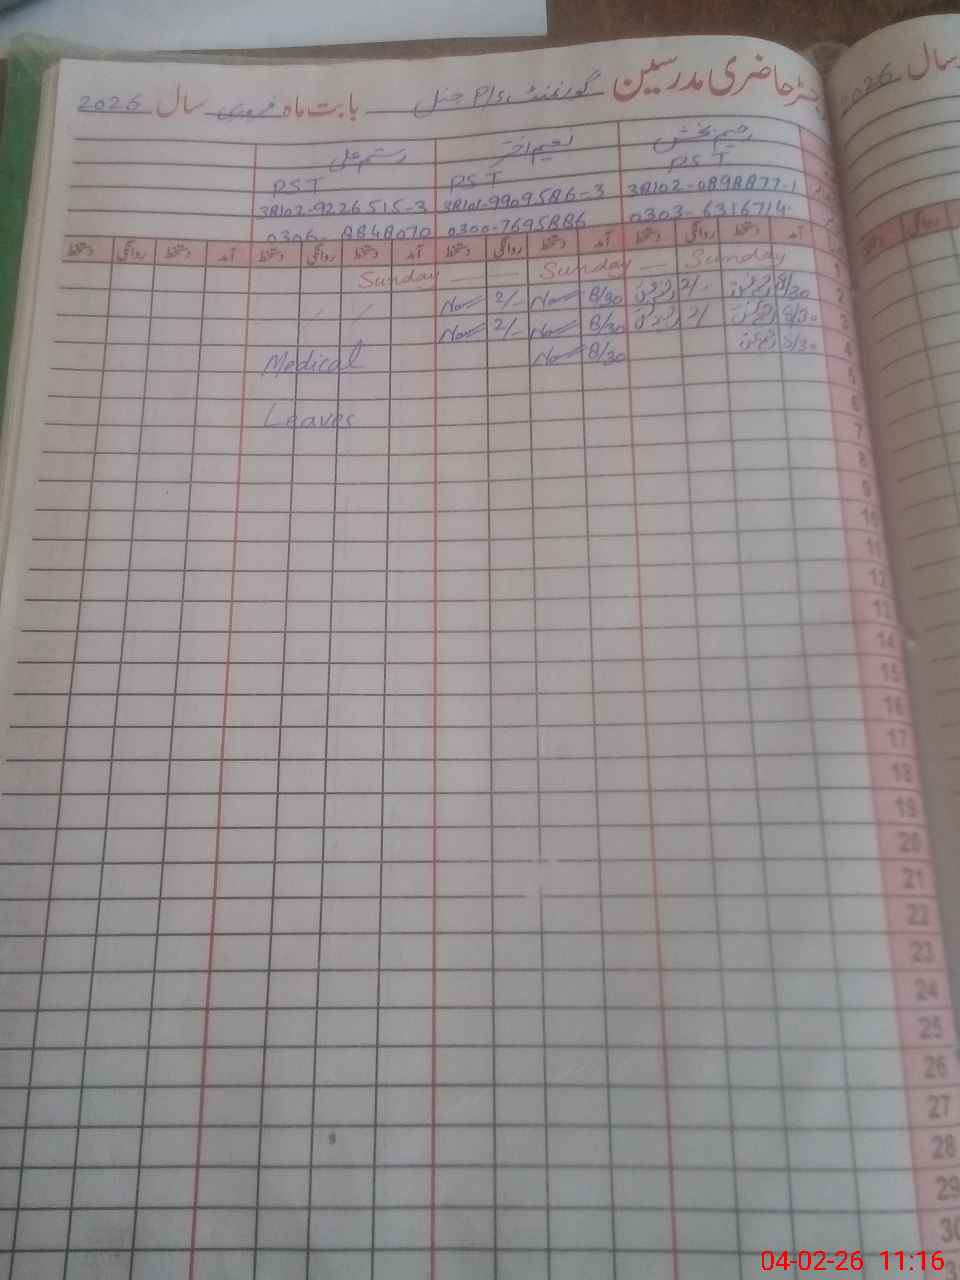 رجسٹر حاضری مدرسین گورنمنٹ P/S جنل بابت ماہ فروری سال 2026
سال 2026
رحیم بخش نعیم اختر رستم علی
PST PST PST
38102-0898877-1 38101-9909586-3 38102-9226515-3
0303-6316714 0300-7695886 0306-8848070
آمد دستخط روانگی دستخط آمد دستخط روانگی دستخط آمد دستخط روانگی دستخط آمد دستخط روانگی دستخط
1 Sunday Sunday Sunday
2 8/30 2/- 8/30 2/-
3 8/30 2/ 8/30 2/-
4 8/30 8/30 Medical
5
6 Leaves
7
8
9
10
11
12
13
14
15
16
17
18
19
20
21
22
23
24
25
26
27
28
29
30
04-02-26 11:16